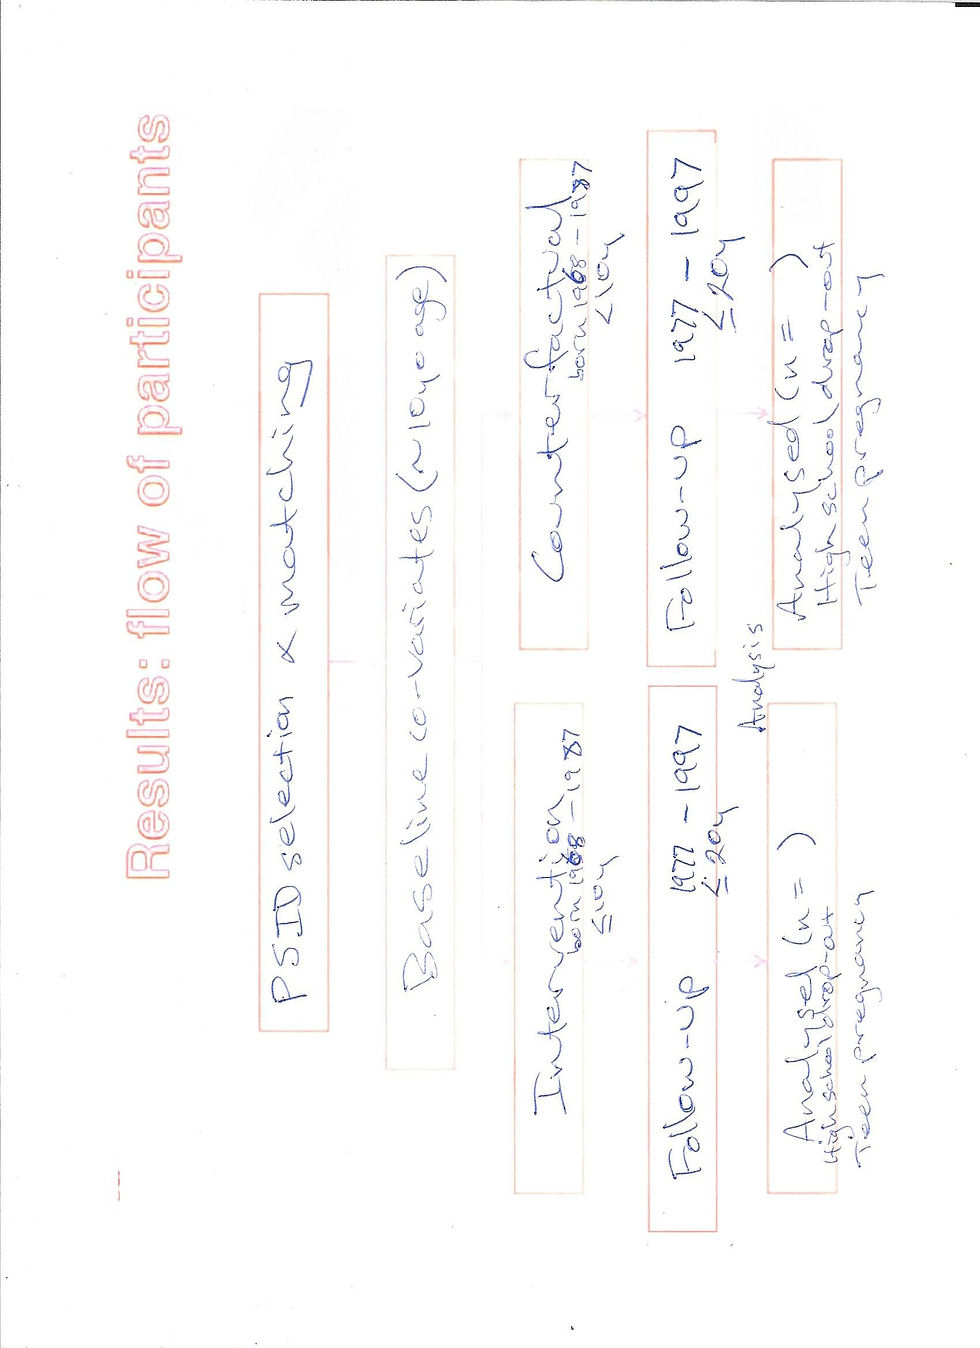 Results: flow of participants
PSID selection & matching
Baseline co-variates (~10y age)
Intervention
born 1968 – 1987
≤10y
Counterfactual
born 1968 – 1987
<10y
Follow-up 1977 – 1997
≤20y
Follow-up 1977 – 1997
≤20y
Analysis
Analysed (n = )
High school drop-out
Teen pregnancy
Analysed (n = )
High school drop-out
Teen pregnancy